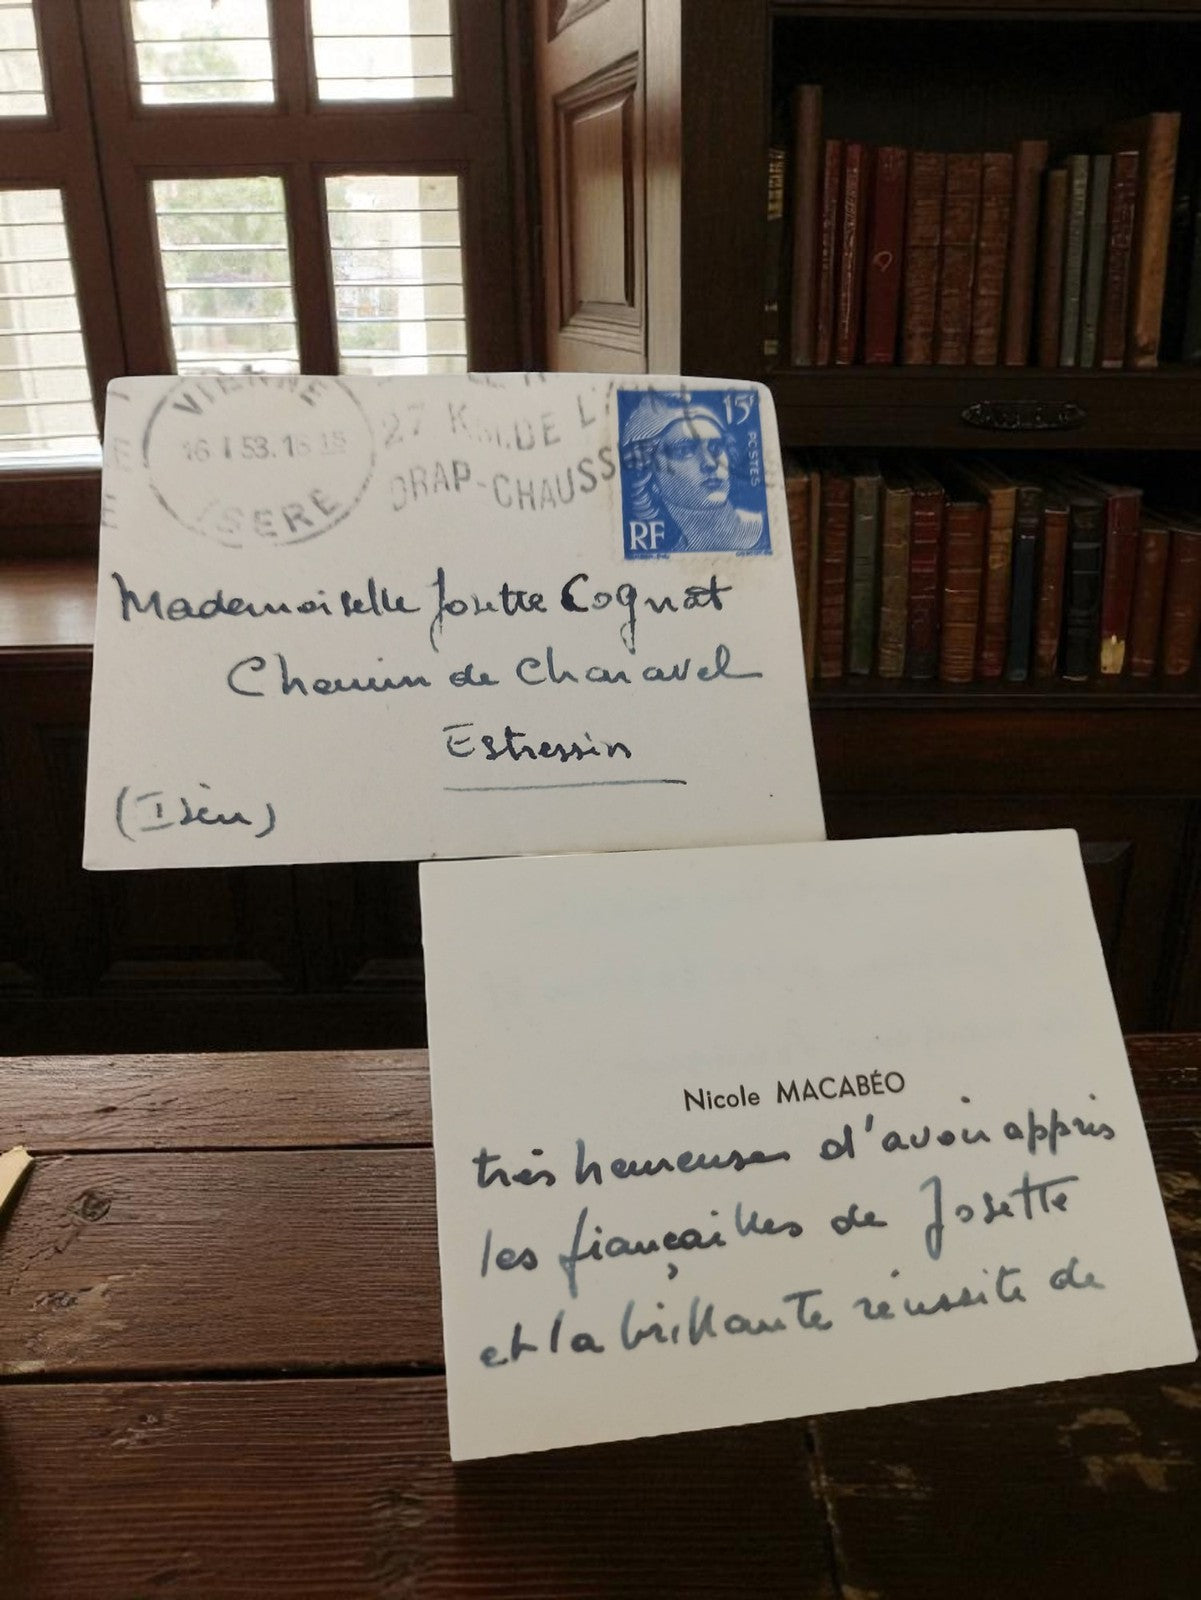 VIENNE
16 1 53. 16
ISERE
27 KM.DE
DRAP-CHAUSS
15F
POSTES
RF
Mademoiselle Josette Cognat
Chemin de Charavel
Estressin
(Isère)
Nicole MACABÉO
très heureuse d'avoir appris
les fiançailles de Josette
et la brillante réussite de